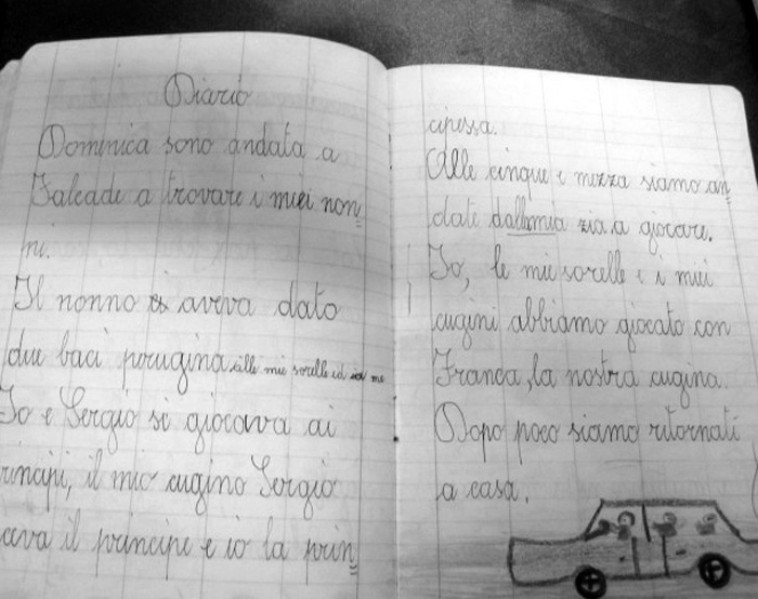 Diario
Domenica sono andata a
Falcade a trovare i miei non=
ni.
Il nonno aveva dato
due baci perugina alle mie sorelle ed a me
Io e Sergio si giocava ai
rincipi, il mio cugino Sergio
ceva il principe e io la prin=
cipessa.
Alle cinque e mezza siamo an=
dati dallamia zia a giocare.
Io, le mie sorelle e i miei
cugini abbiamo giocato con
Franca, la nostra cugina.
Dopo poco siamo ritornati
a casa.